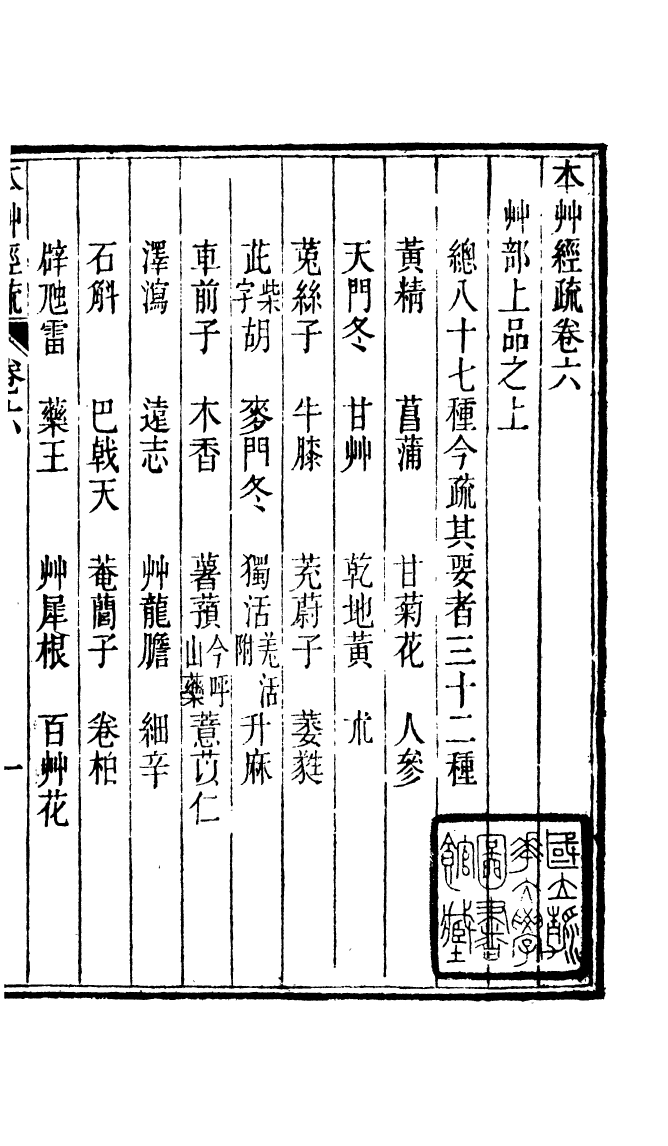 本艸經疏卷六
艸部上品之上
總八十七種今疏其要者三十二種
黃精 菖蒲 甘菊花 人參
天門冬 甘艸 乾地黃 朮
菟絲子 牛膝 茺蔚子 萎蕤
茈柴字胡 麥門冬 獨活羌活附 升麻
車前子 木香 薯蕷今呼山藥 薏苡仁
澤瀉 遠志 艸龍膽 細辛
石斛 巴戟天 菴䕡子 卷柏
辟虺雷 藥王 艸犀根 百艸花
本艸經疏 卷六 一
國立浙江大學圖書館藏